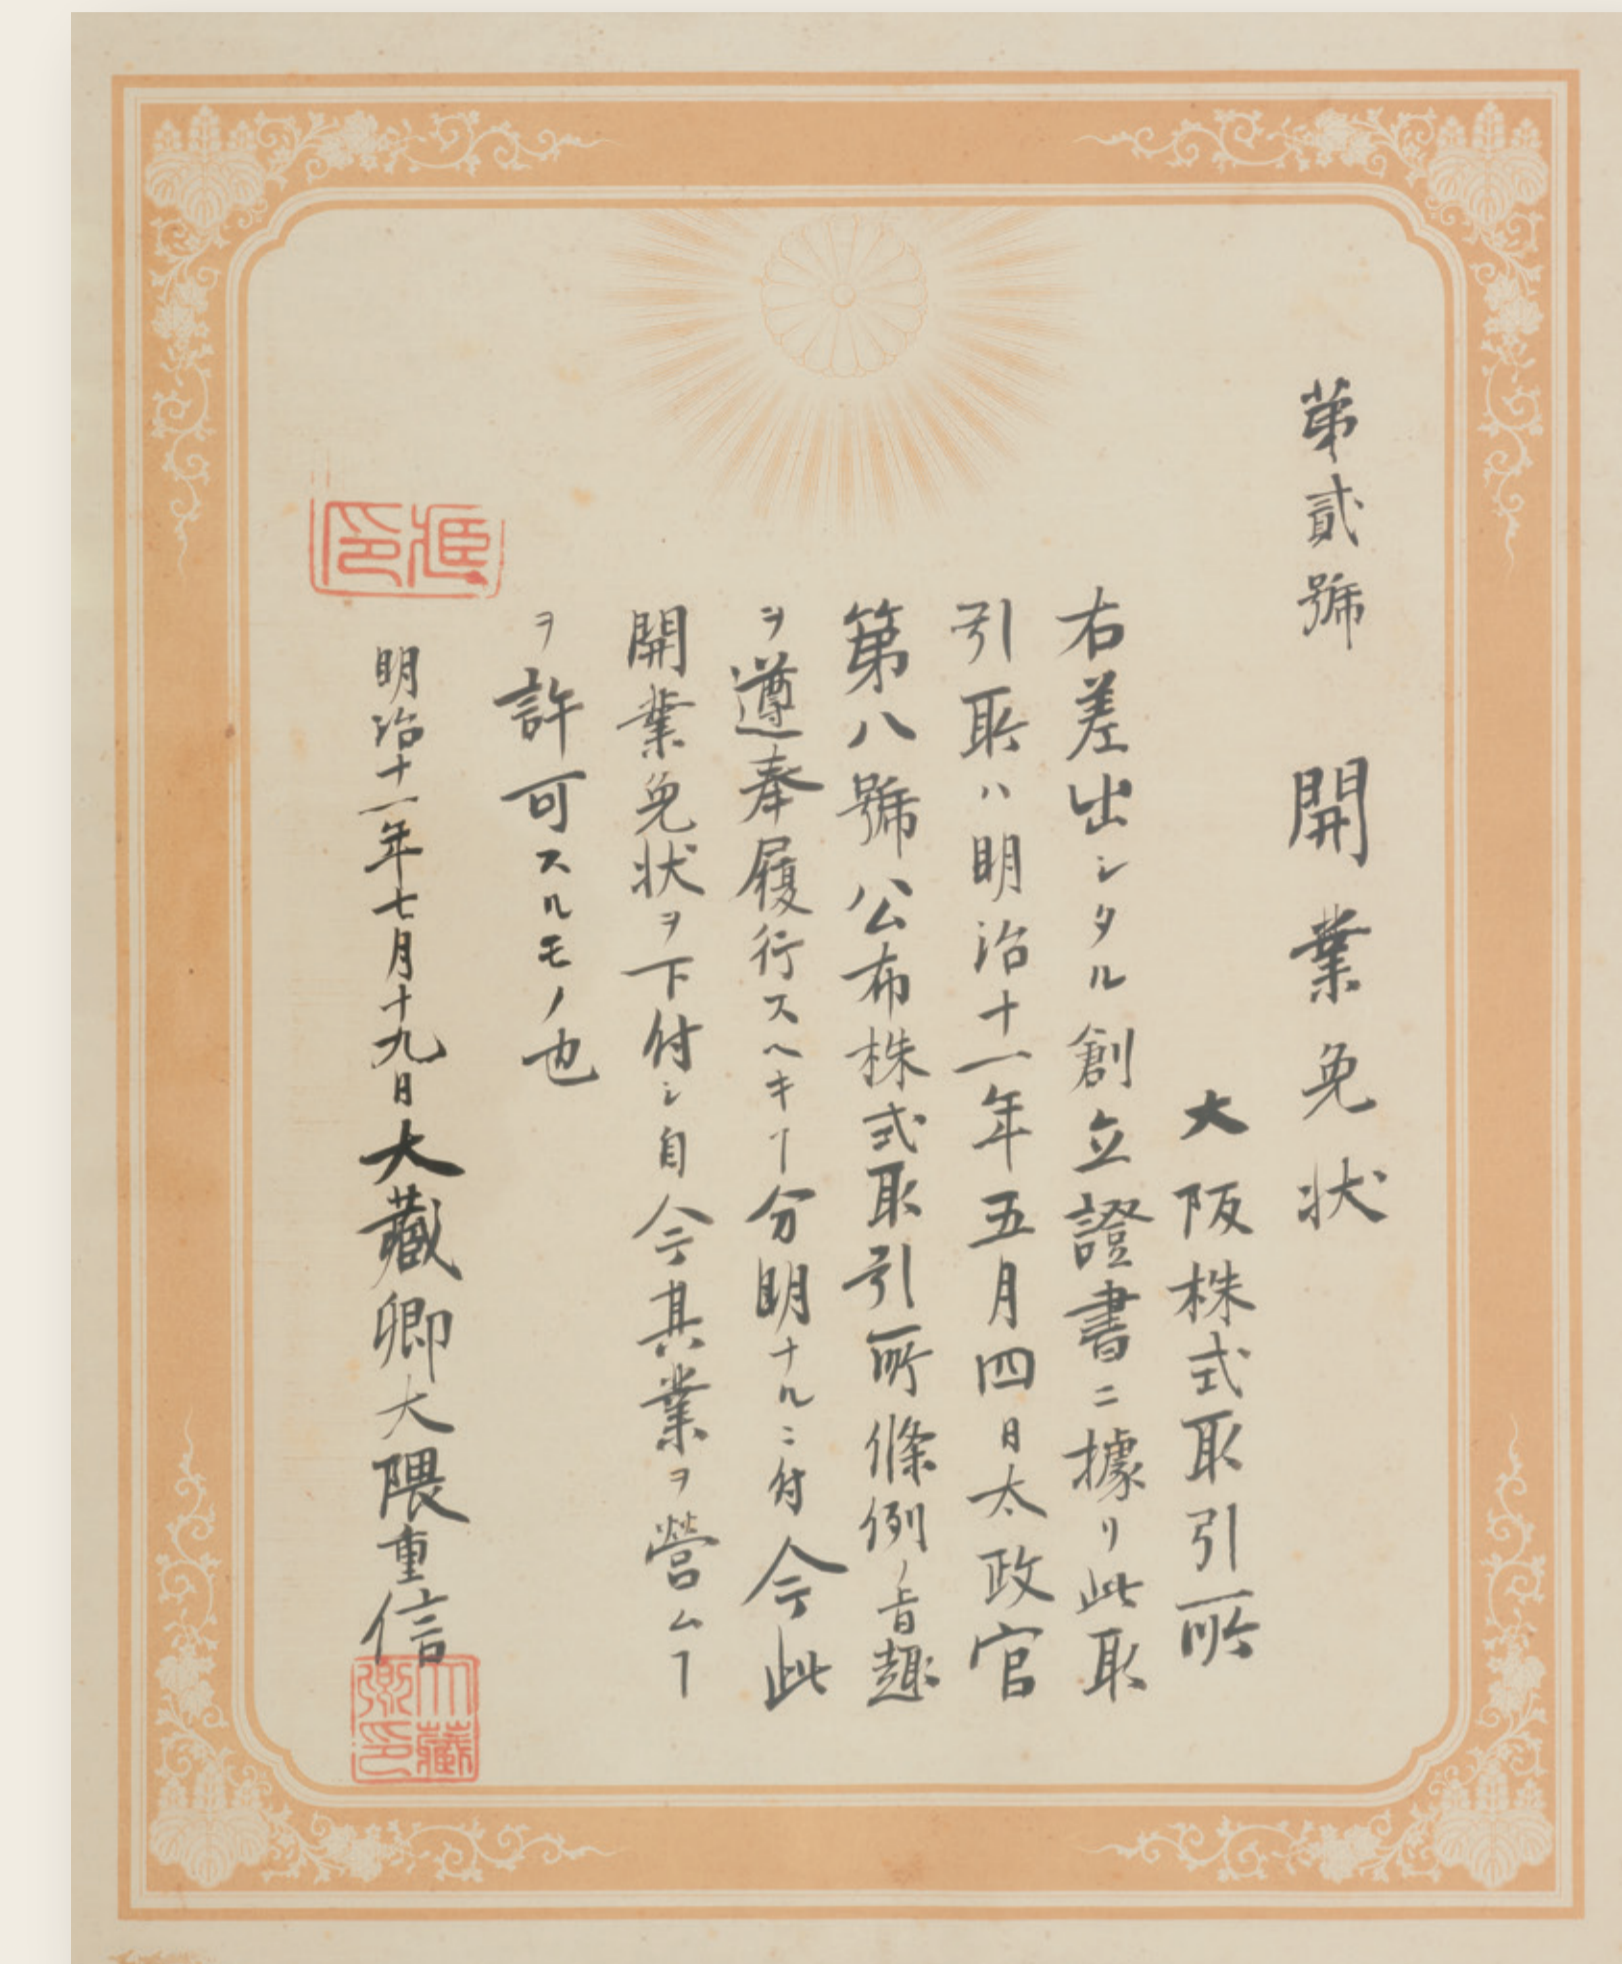 苐貳號　開業免状
大阪株式取引所
右差出シタル創立證書ニ據リ此取
引所ハ明治十一年五月四日太政官
第八號公布株式取引所條例ノ旨趣
ヲ遵奉履行スヘキヿ分明ナルニ付今此
開業免状ヲ下付シ自今其業ヲ營ムヿ
ヲ許可スルモノ也
明治十一年七月十九日大藏卿大隈重信
大藏卿印